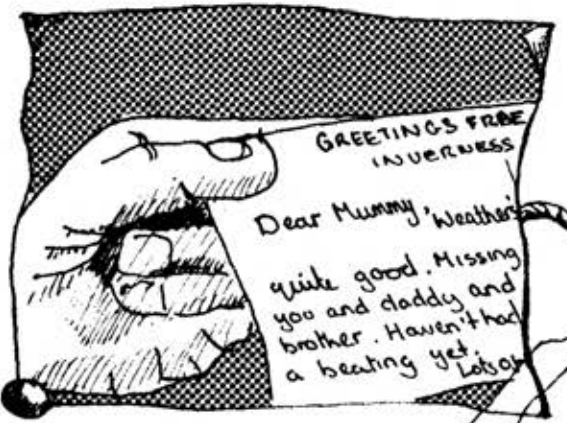 GREETINGS FRAE
INVERNESS
Dear Mummy, Weather's
quite good. Missing
you and daddy and
brother. Haven't had
a beating yet.
Lots o'